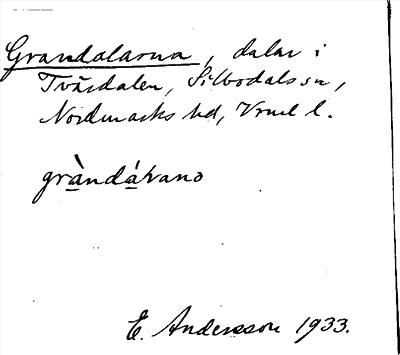 Grandalarna, dalar i
Tvärdalen, Silbodals sn,
Nordmarks hd, Vrml l.
gràndáɫranɔ
E. Andersson 1933.